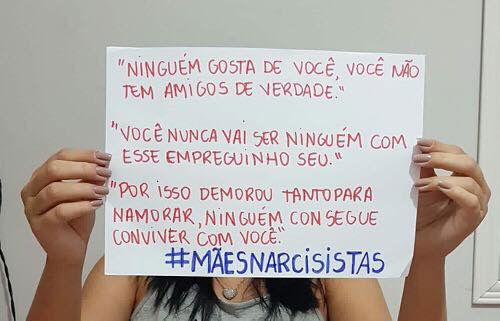 "NINGUÉM GOSTA DE VOCÊ, VOCÊ NÃO
TEM AMIGOS DE VERDADE."
"VOCÊ NUNCA VAI SER NINGUÉM COM
ESSE EMPREGUINHO SEU."
"POR ISSO DEMOROU TANTO PARA
NAMORAR, NINGUÉM CONSEGUE
CONVIVER COM VOCÊ."
#MÃESNARCISISTAS